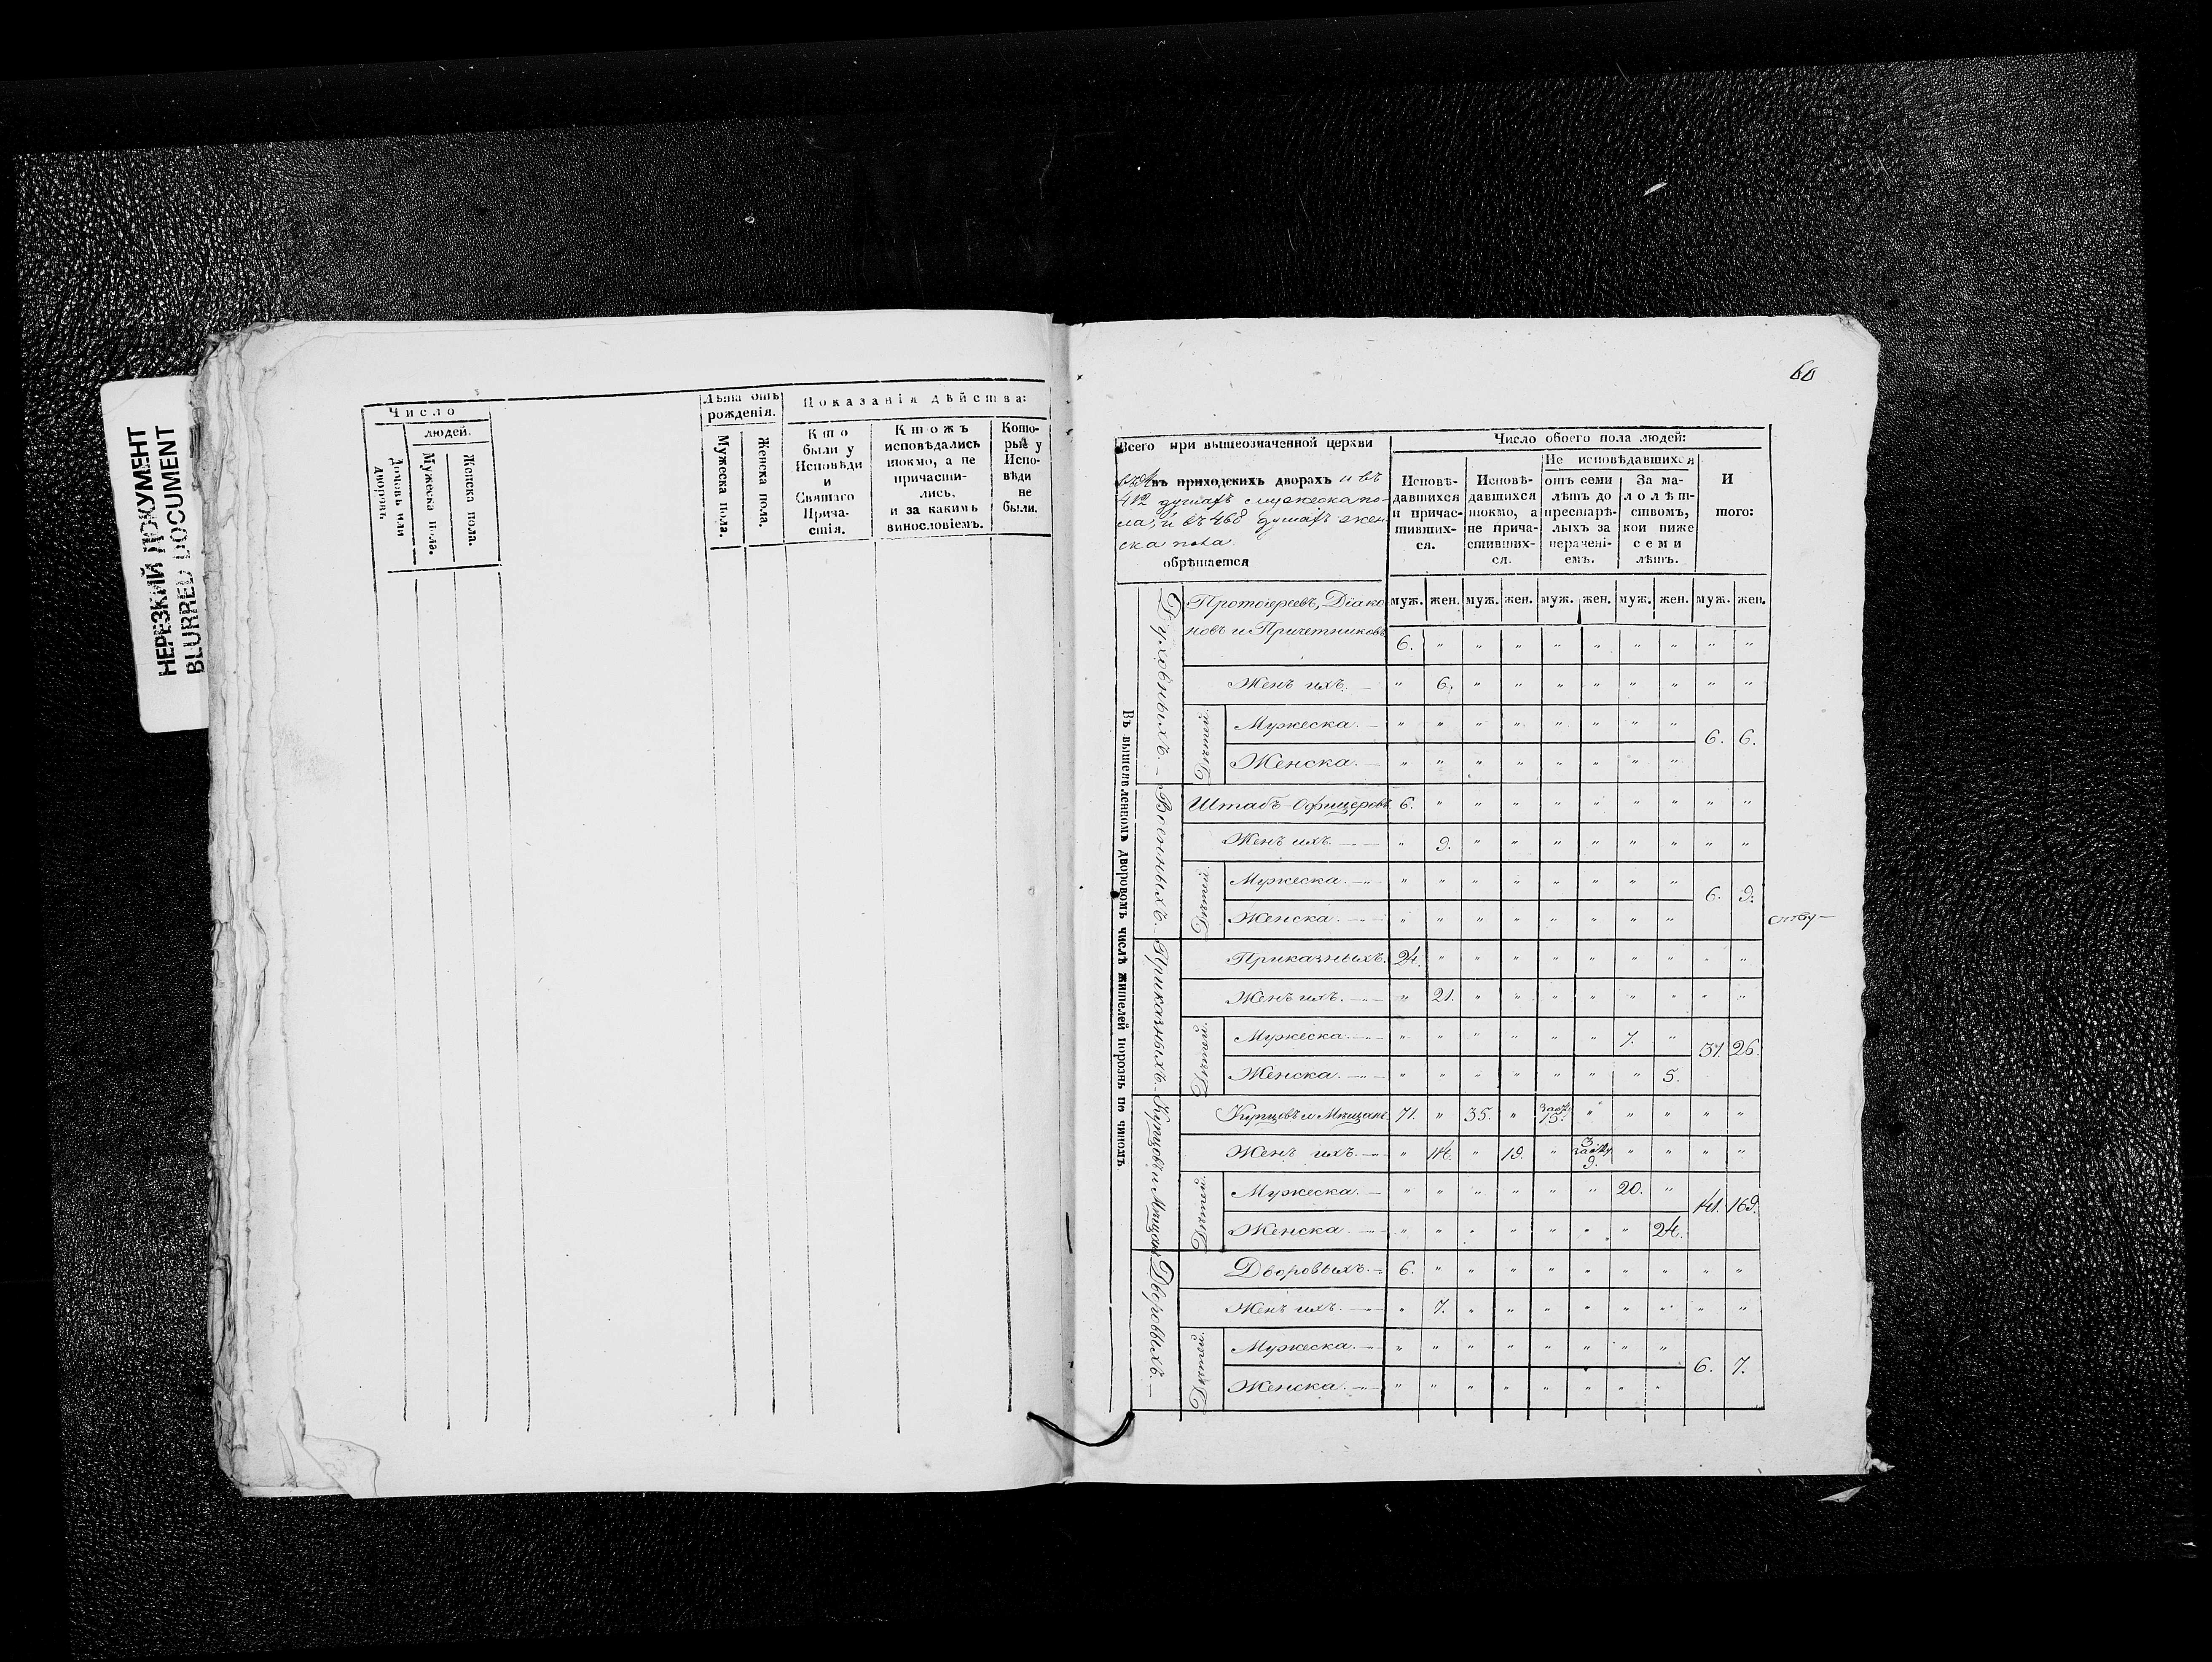 НЕРЕЗКИЙ ДОКУМЕНТ
BLURRED DOCUMENT
Число
людей.
Домовъ или дворовъ.
Мужеска пола.
Женска пола.
Лѣта отъ рожденія.
Мужеска пола.
Женска пола.
Показанія дѣйства:
Кто
были у
Исповѣди
и
Святаго
Прича-
стія.
Ктожъ
исповѣдались
токмо, а не
причасти-
лись,
и за какимъ
винословіемъ.
Кото-
рые у
Испо-
вѣди
не
были.
60
Всего при вышеозначенной церкви
въ приходскихъ дворахъ и въ
412 душахъ мужеска по-
ла, и въ 468 душахъ жен
ска пола
обрѣтается
Число обоего пола людей:
Исповѣ-
давшихся
и причас-
тивших-
ся.
Исповѣ-
давшихся
токмо, а
не прича-
стивших-
ся.
Не исповѣдавшихся
отъ семи
лѣтъ до
престарѣ-
лыхъ за
нерачені-
емъ.
За ма-
лолѣт-
ствомъ,
кои ниже
семи
лѣтъ.
И
того:
муж. жен. муж. жен. муж. жен. муж. жен. муж. жен.
Въ вышеявленномъ дворовомъ числѣ жителей порознь по чиномъ
Духовныхъ.
Протоіереевъ, Діако
новъ и Причетниковъ 6. " " " " " " " " "
Женъ ихъ. " 6. " " " " " " " "
Дѣтей.
Мужеска. " " " " " " " "
6. 6.
Женска. " " " " " " " "
Военныхъ.
Штабъ-Офицеровъ 6. " " " " " " " " "
Женъ ихъ. " 9. " " " " " " " "
Дѣтей.
Мужеска. " " " " " " " "
6. 9.
Женска. " " " " " " " "
Приказныхъ.
Приказныхъ. 24. " " " " " " " " "
Женъ ихъ. " 21. " " " " " " " "
Дѣтей.
Мужеска. " " " " " " 7. "
31. 26.
Женска. " " " " " " " 5.
Купцовъ и Мѣщанъ
Купцовъ и Мѣщанъ 71. " 35. " 15. " " " " "
Женъ ихъ. " 114. " 19. " 9. " " " "
Дѣтей.
Мужеска. " " " " " " 20. "
141. 169.
Женска. " " " " " " " 24.
Дворовыхъ.
Дворовыхъ. 6. " " " " " " " " "
Женъ ихъ. " 7. " " " " " " " "
Дѣтей.
Мужеска. " " " " " " " "
6. 7.
Женска. " " " " " " " "